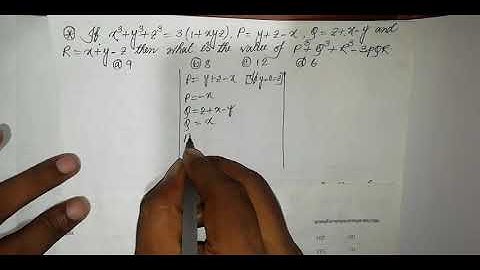 * If x³+y³+z³ = 3(1+xyz), P = y+z-x, Q = z+x-y and
R = x+y-z then what is the value of P³+Q³+R³-3PQR
ⓐ 9 ⓑ 8 ⓒ 12 ⓓ 6
P = y+z-x
P = -x
Q = z+x-y
Q = x